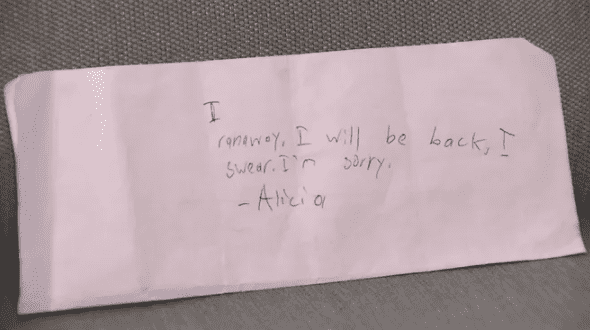 I
ranaway. I will be back, I
swear. I'm sorry.
- Alicia